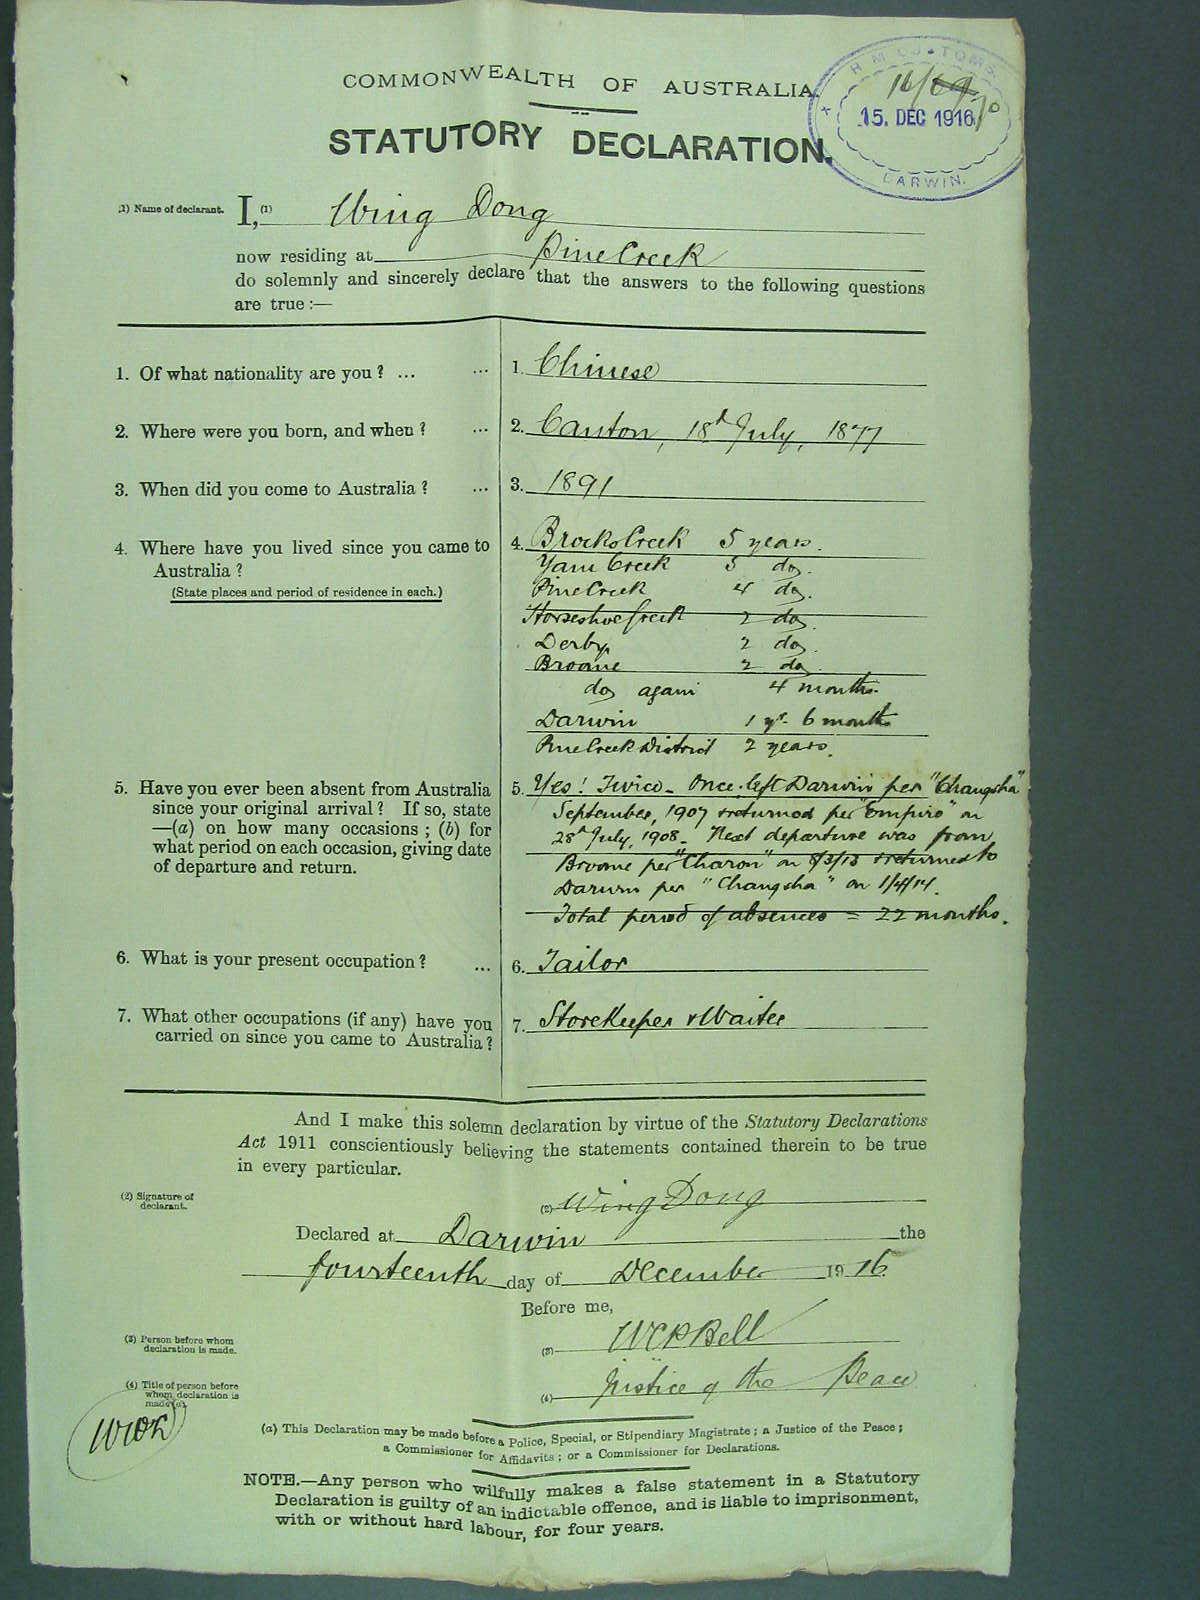 COMMONWEALTH OF AUSTRALIA.
H.M. CUSTOMS.
15. DEC 1916
DARWIN.
STATUTORY DECLARATION.
(1) Name of declarant. I, (1) Wing Dong
now residing at Pine Creek
do solemnly and sincerely declare that the answers to the following questions
are true :—
1. Of what nationality are you ? ... ... 1. Chinese
2. Where were you born, and when ? ... 2. Canton, 18th July, 1877
3. When did you come to Australia ? ... 3. 1891
4. Where have you lived since you came to 4. Brocks Creek 5 years.
Australia ? Yam Creek 5 do.
(State places and period of residence in each.) Pine Creek 4 do.
Horseshoe Creek 2 do.
Derby 2 do.
Broome 2 do.
do again 4 months.
Darwin 1 yr. 6 months
Pine Creek District 2 years.
5. Have you ever been absent from Australia 5. Yes! Twice - Once left Darwin per "Changsha"
since your original arrival ? If so, state September, 1907 & returned per "Empire" on
—(a) on how many occasions ; (b) for 28th July, 1908. Next departure was from
what period on each occasion, giving date Broome per "Charon" on 8/3/13 & returned to
of departure and return. Darwin per "Changsha" on 1/4/14.
Total period of absences = 22 months.
6. What is your present occupation ? ... 6. Tailor
7. What other occupations (if any) have you 7. Storekeeper & Waiter
carried on since you came to Australia ?
And I make this solemn declaration by virtue of the Statutory Declarations
Act 1911 conscientiously believing the statements contained therein to be true
in every particular.
(2) Signature of declarant. (2) Wing Dong
Declared at Darwin the
fourteenth day of December 1916
Before me,
(3) Person before whom declaration is made. (3) W C P Bell
(4) Title of person before whom declaration is made (a). (4) Justice of the Peace
(a) This Declaration may be made before a Police, Special, or Stipendiary Magistrate ; a Justice of the Peace ;
a Commissioner for Affidavits ; or a Commissioner for Declarations.
NOTE.—Any person who wilfully makes a false statement in a Statutory
Declaration is guilty of an indictable offence, and is liable to imprisonment,
with or without hard labour, for four years.